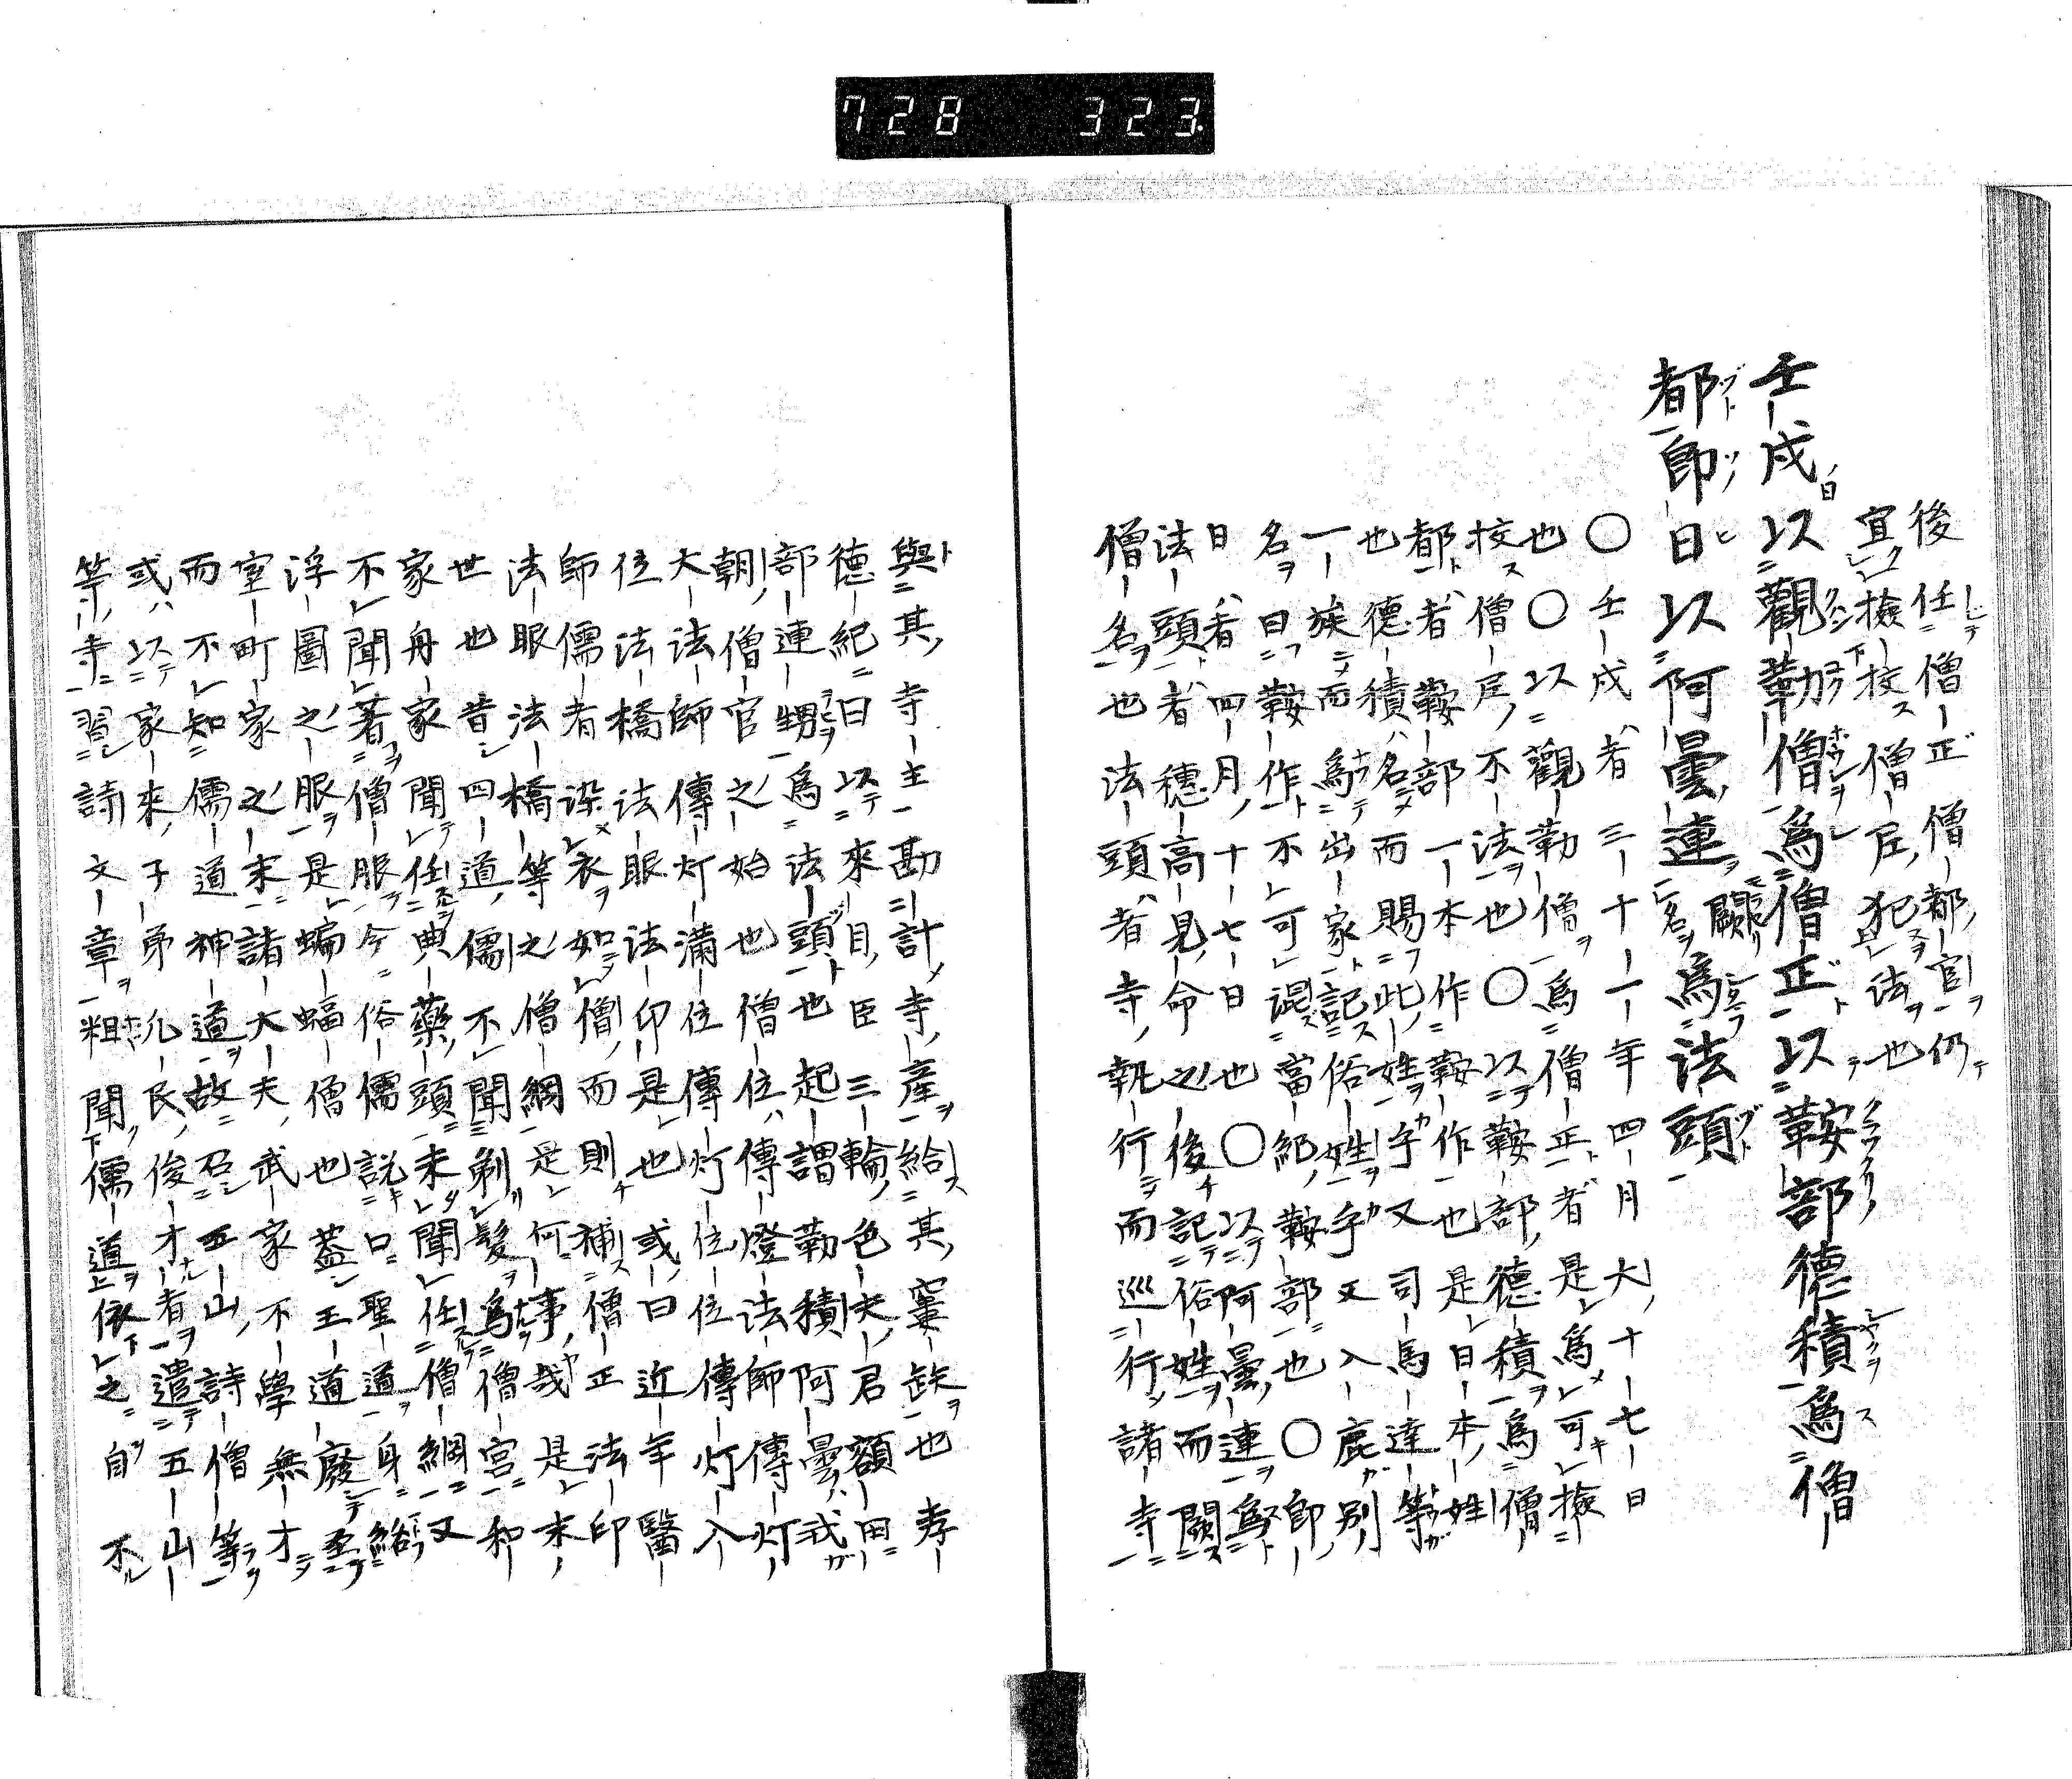 728 323
後任僧正僧都官仍
宜檢校僧尼犯法也
壬戌日以觀勒僧爲僧正以鞍部德積爲僧
都卽日以阿曇連闕名爲法頭
〇壬戌者三十一年四月大十七日
也〇以觀勒僧爲僧正者是爲可檢
校僧尼不法也〇以鞍部德積爲僧
都者鞍部一本作鞍作也是日本姓
也德積名而賜此姓乎又司馬達等
一族而爲出家記俗姓乎又入鹿別
名曰鞍作不可混當紀鞍部也〇卽
日者四月十七日也〇以阿曇連爲
法頭者穗高見命之後記俗姓而闕
僧名也法頭者寺執行而巡行諸寺
與其寺主勘計寺產給其窶缺也孝
德紀曰以來目臣三輪色夫君額田
部連甥爲法頭也起謂勒積阿曇我
朝僧官之始也僧位傳燈法師傳灯
大法師傳灯滿位傳灯位位傳灯入
位法橋法眼法印是也或曰近年醫
師儒者染衣如僧而則補僧正法印
法眼法橋等之僧綱是何事哉是末
世也昔四道儒不聞剃髮爲僧宮和
家丹家聞任典藥頭未聞任僧綱又
不聞著僧服今俗儒說口聖道身綹
浮圖之服是蝙蝠僧也蓋王道廢至
室町家之末諸大夫武家不學無才
而不知儒道神道故召五山詩僧等
或以家來子弟凡民俊才者遣五山
等寺習詩文章粗聞儒道依之自不